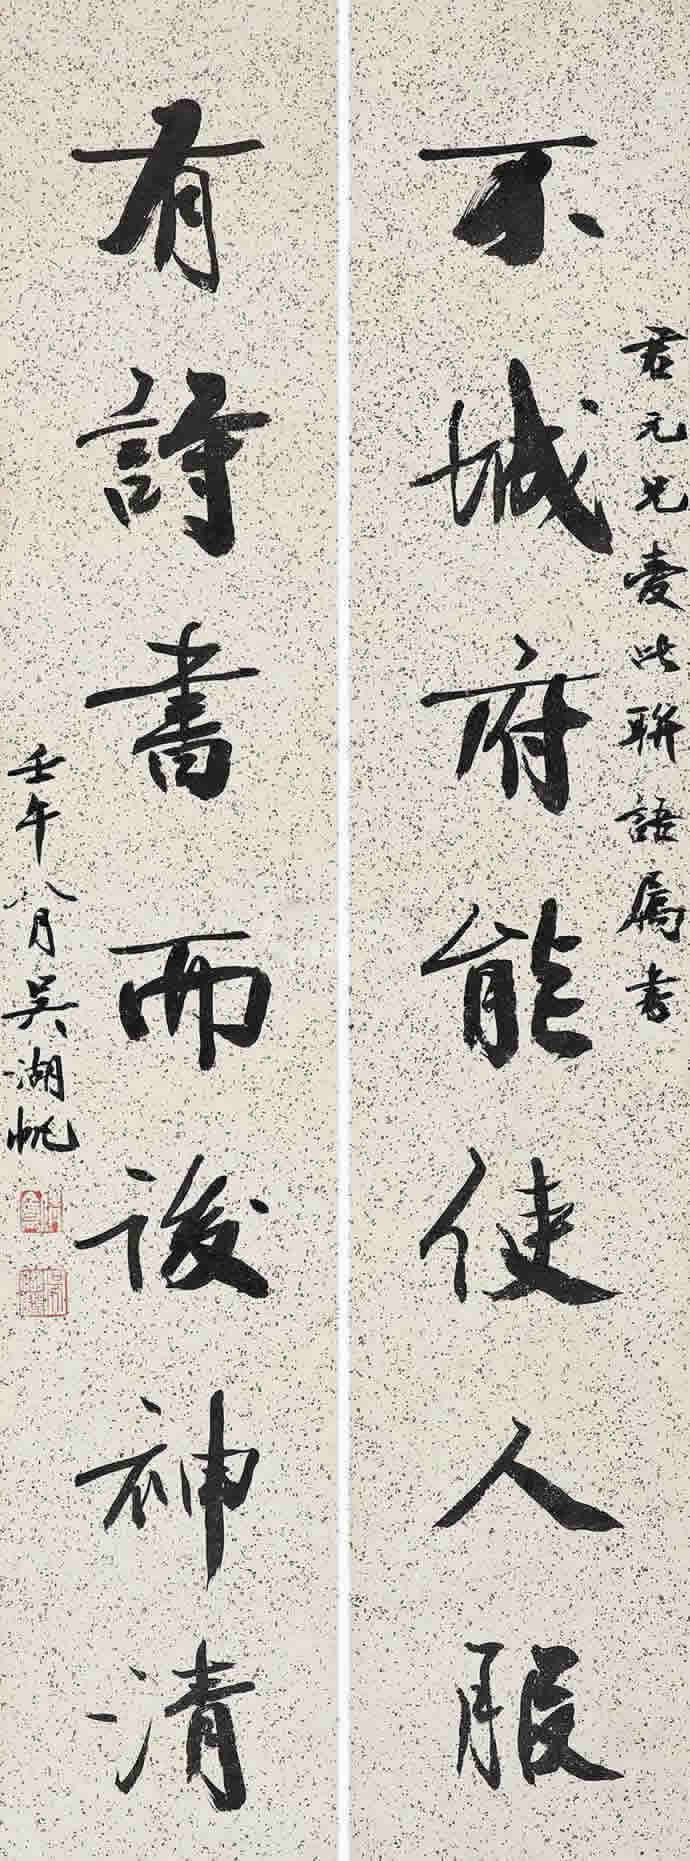 君元兄爱此聯語属書
不城府能使人服
有詩書而後神清
壬午八月吴湖帆